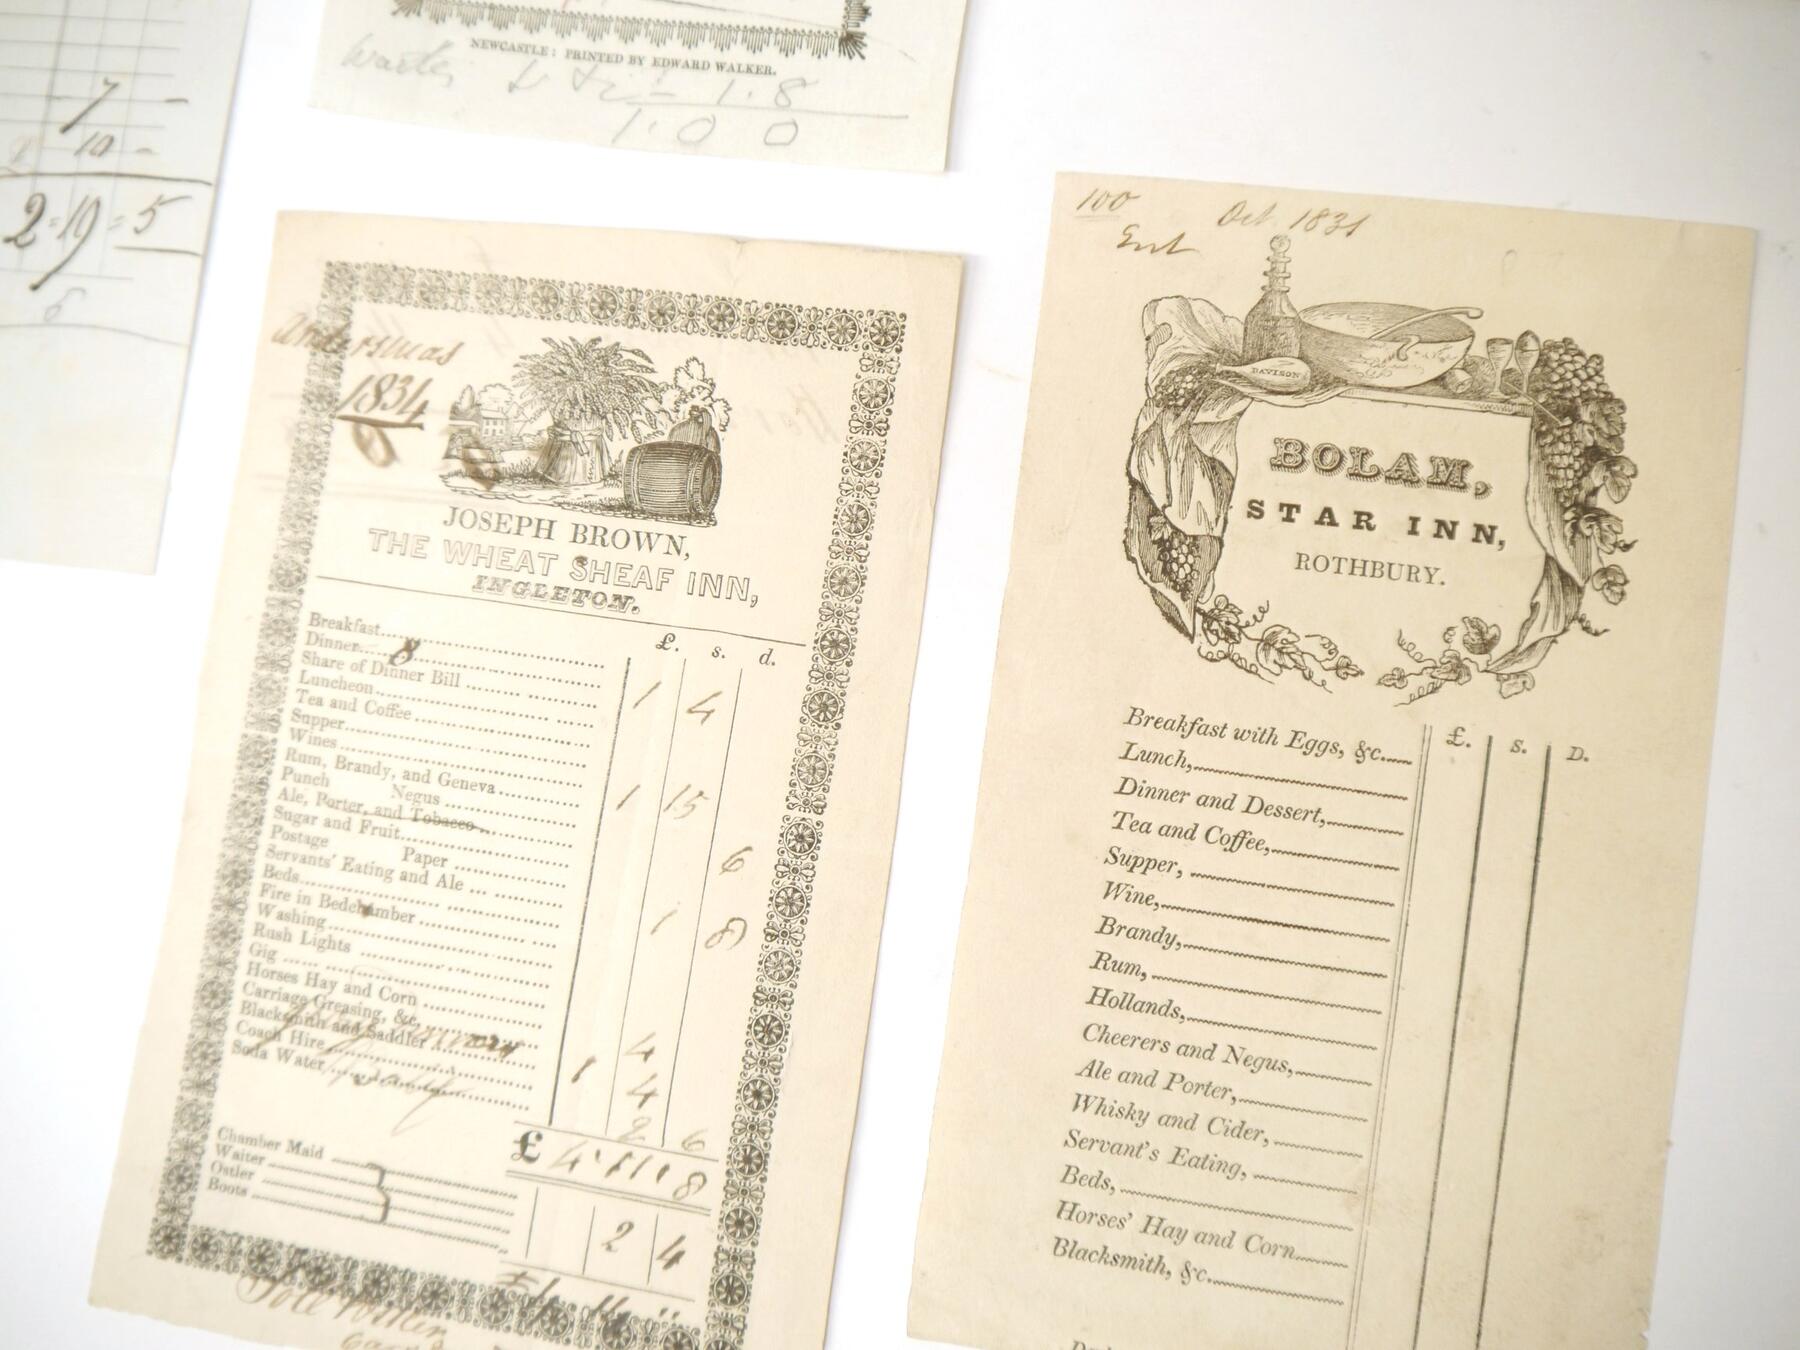 7 -
10 -
2=19=5
6
NEWCASTLE: PRINTED BY EDWARD WALKER.
1.8
1.0 0
1834
JOSEPH BROWN,
THE WHEAT SHEAF INN,
INGLETON.
£. s. d.
Breakfast
Dinner 8
Share of Dinner Bill 1 4
Luncheon
Tea and Coffee
Supper
Wines
Rum, Brandy, and Geneva 1 15
Punch Negus
Ale, Porter, and Tobacco
Sugar and Fruit 6
Postage Paper
Servants' Eating and Ale 1 8
Beds
Fire in Bedchamber
Washing
Rush Lights
Gig
Horses Hay and Corn 4
Carriage Greasing, &c.
Blacksmith and Saddler 1 4
Coach Hire
Soda Water 2 6
£ 4 11 8
Chamber Maid
Waiter
Ostler 2 4
Boots
100
Oct. 1831
DAVISON
BOLAM,
STAR INN,
ROTHBURY.
£. S. D.
Breakfast with Eggs, &c.
Lunch,
Dinner and Dessert,
Tea and Coffee,
Supper,
Wine,
Brandy,
Rum,
Hollands,
Cheerers and Negus,
Ale and Porter,
Whisky and Cider,
Servant's Eating,
Beds,
Horses' Hay and Corn
Blacksmith, &c.